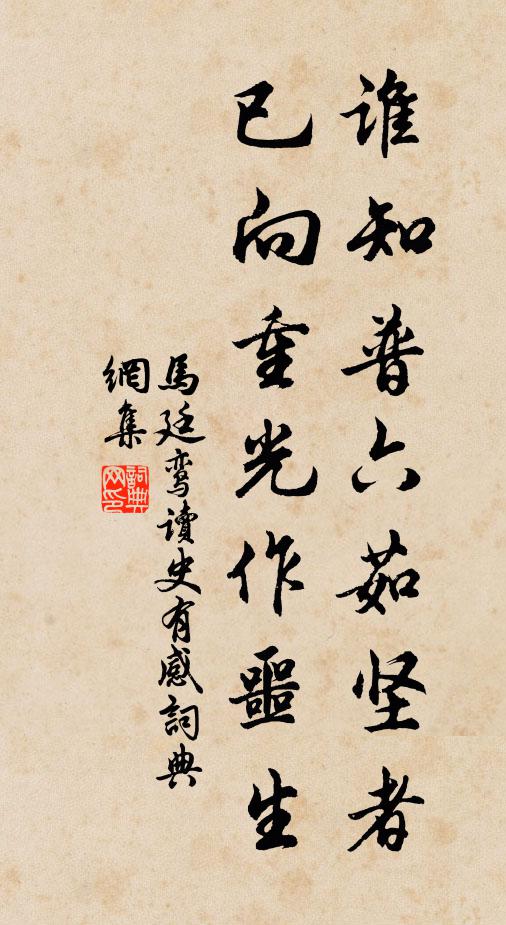 谁知普六茹坚者
已向重光作噩生
馬廷鸾讀史有感詞典
網集
詞典
网印